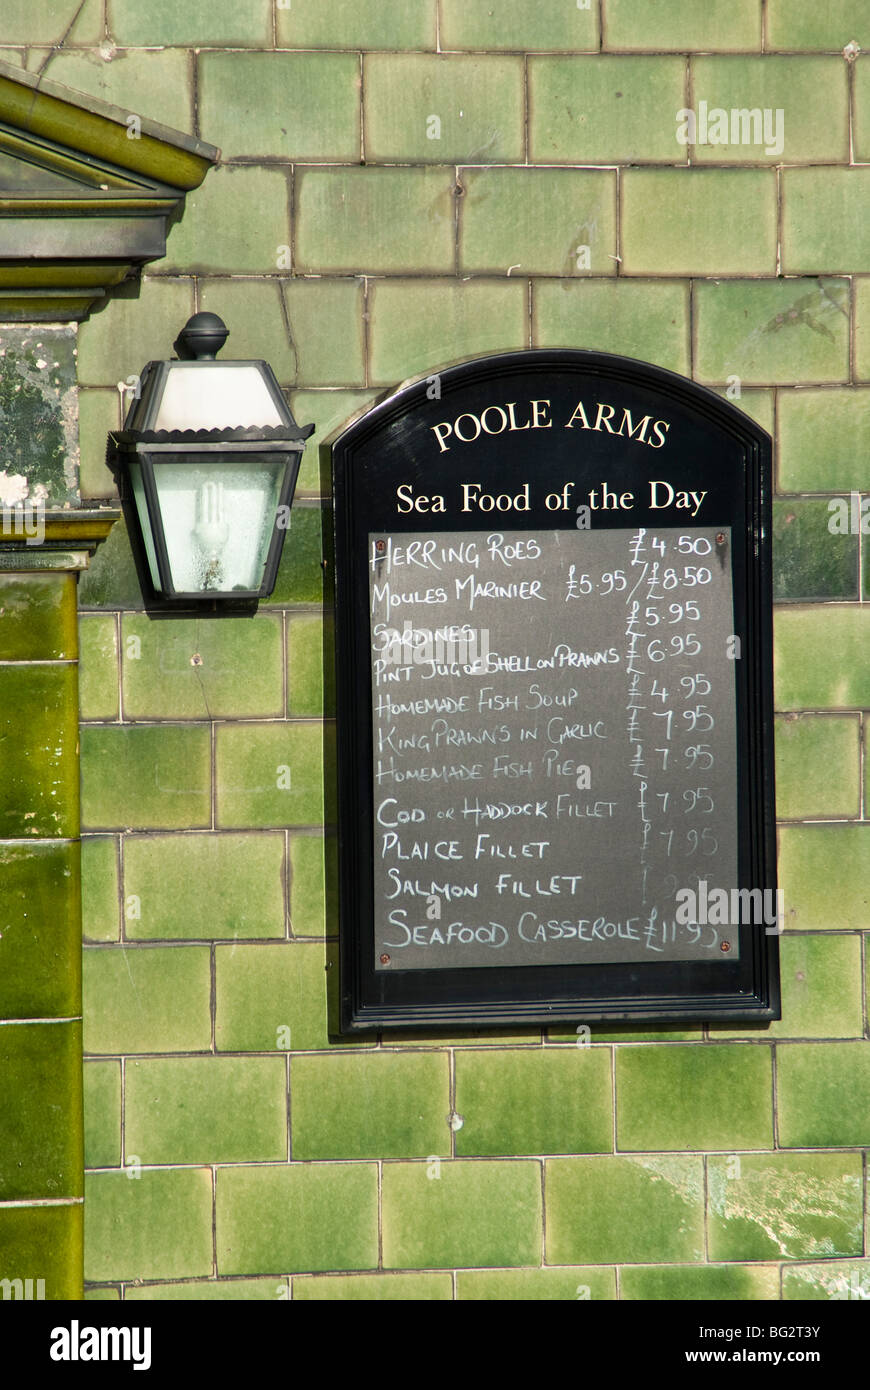 POOLE ARMS
Sea Food of the Day
HERRING ROES £4.50
MOULES MARINIER £5.95/£8.50
SARDINES £5.95
PINT JUG OF SHELL ON PRAWNS £6.95
HOMEMADE FISH SOUP £4.95
KING PRAWNS IN GARLIC £7.95
HOMEMADE FISH PIE £7.95
COD OR HADDOCK FILLET £7.95
PLAICE FILLET £7.95
SALMON FILLET
SEAFOOD CASSEROLE £11.95
alamy
alamy stock photo
BG2T3Y
www.alamy.com